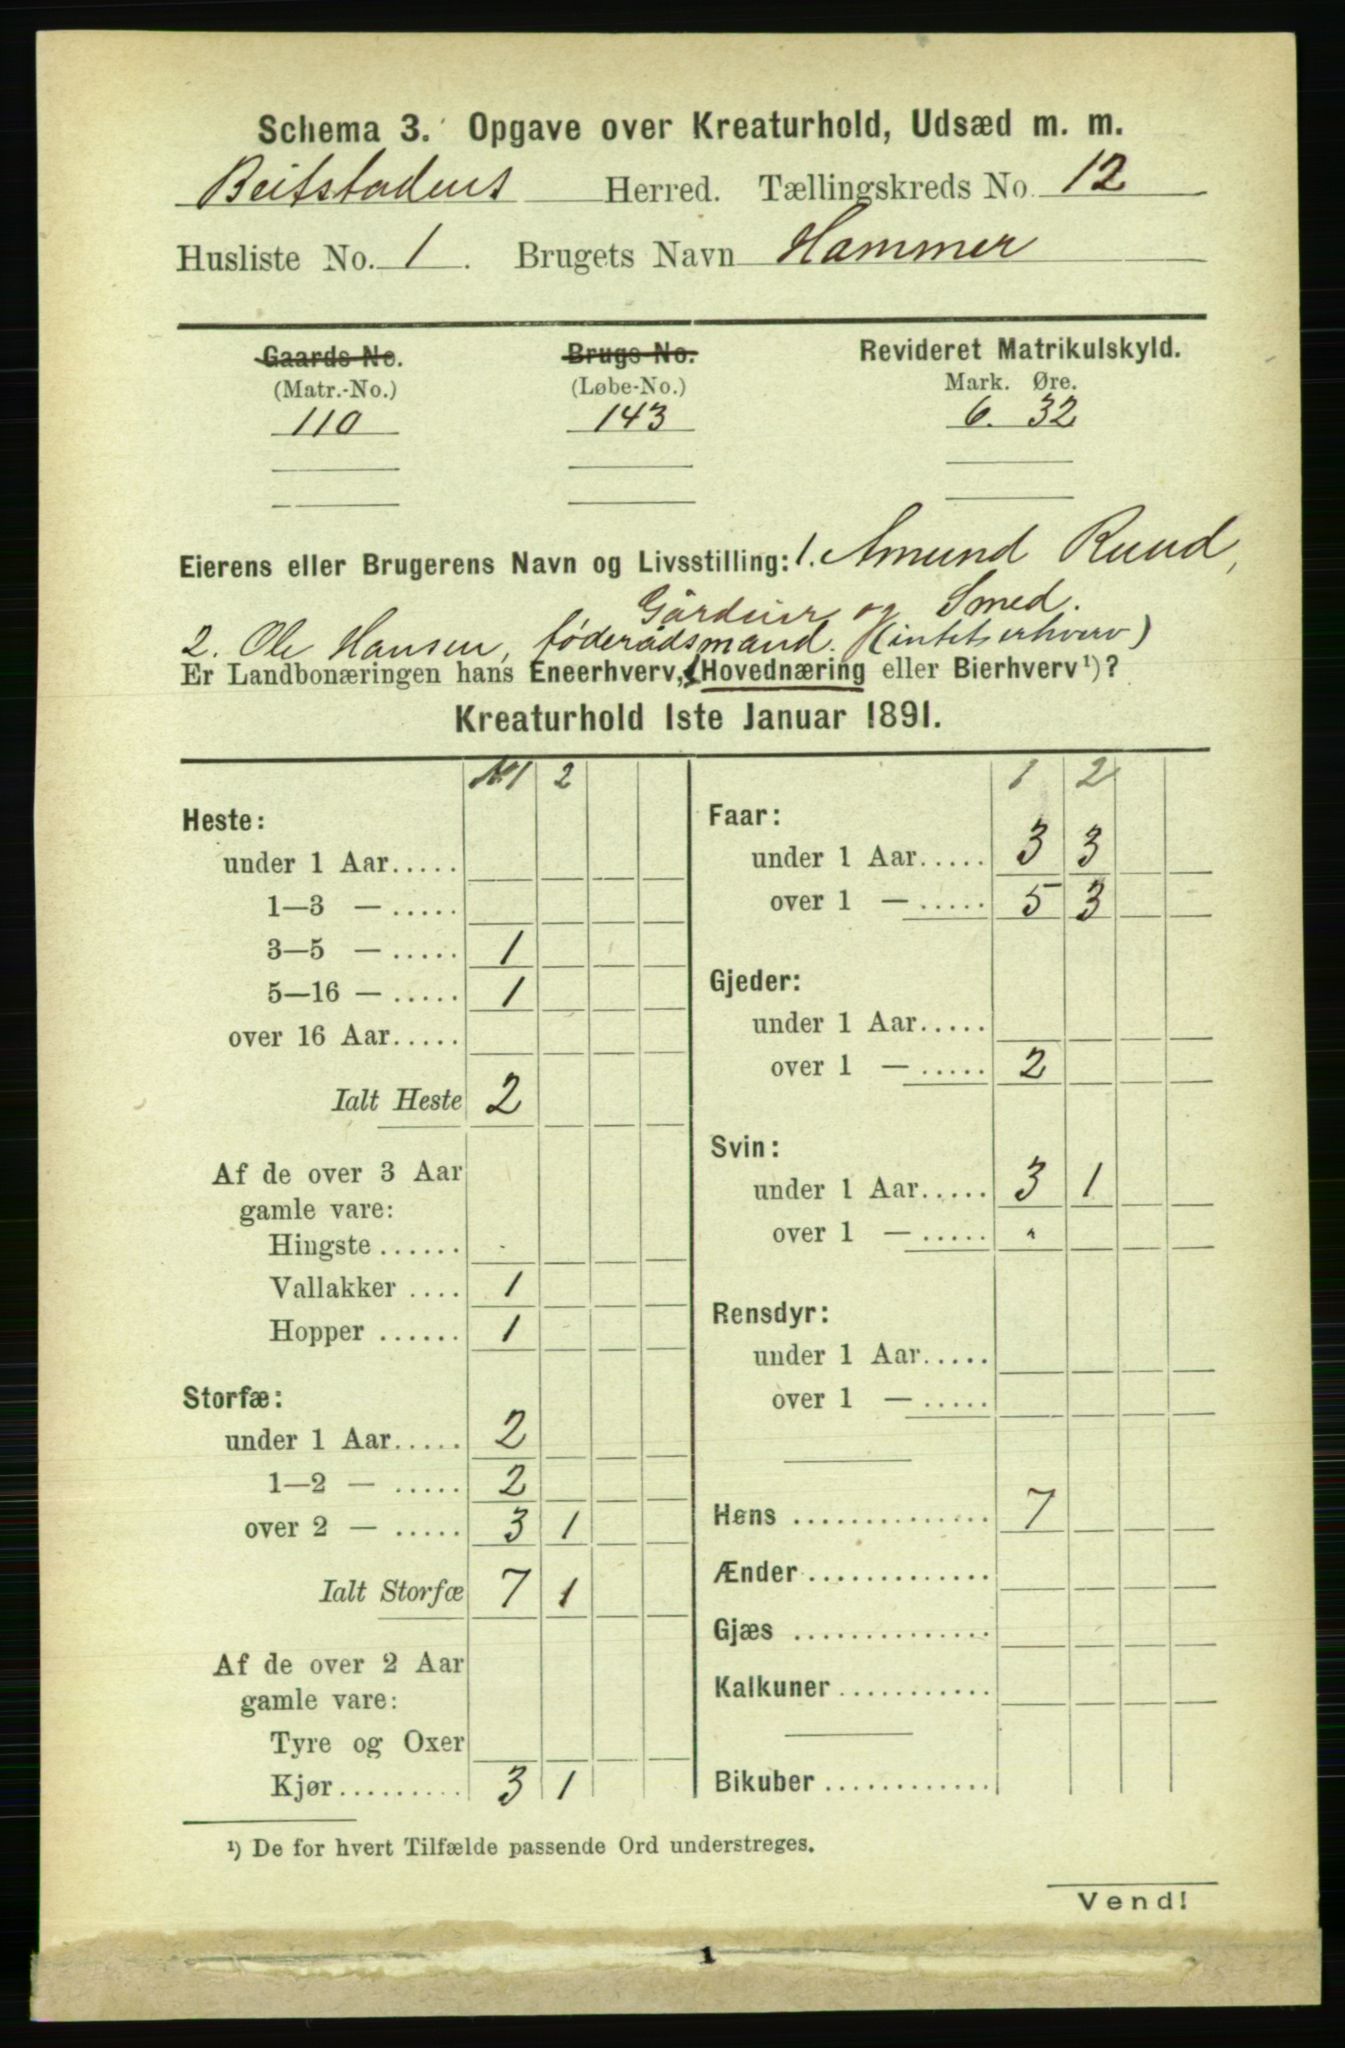 Schema 3. Opgave over Kreaturhold, Udsæd m. m.
Beitstadens Herred. Tællingskreds No. 12
Husliste No. 1. Brugets Navn Hammer
Gaards No. Brugs No. Revideret Matrikulskyld.
(Matr.-No.) (Løbe-No.) Mark. Øre.
110 143 6. 32
Eierens eller Brugerens Navn og Livsstilling: 1. Amund Ruud,
Gårdeier og Smed.
2. Ole Hansen, føderådsmand. (intet erhverv)
Er Landbonæringen hans Eneerhverv, 1 Hovednæring eller Bierhverv¹)?
Kreaturhold 1ste Januar 1891.
№1 2
Heste:
under 1 Aar.....
1—3 — .....
3—5 — ..... 1
5—16 — ..... 1
over 16 Aar.....
Ialt Heste 2
Af de over 3 Aar
gamle vare:
Hingste ......
Vallakker .... 1
Hopper ...... 1
Storfæ:
under 1 Aar..... 2
1—2 — ..... 2
over 2 — ..... 3 1
Ialt Storfæ 7 1
Af de over 2 Aar
gamle vare:
Tyre og Oxer
Kjør......... 3 1
1 2
Faar:
under 1 Aar..... 3 3
over 1 — ..... 5 3
Gjeder:
under 1 Aar.....
over 1 — ..... 2
Svin:
under 1 Aar..... 3 1
over 1 — ..... "
Rensdyr:
under 1 Aar.....
over 1 — .....
Høns .............. 7
Ænder .............
Gjæs ..............
Kalkuner ...........
Bikuber ............
¹) De for hvert Tilfælde passende Ord understreges.
Vend!
1